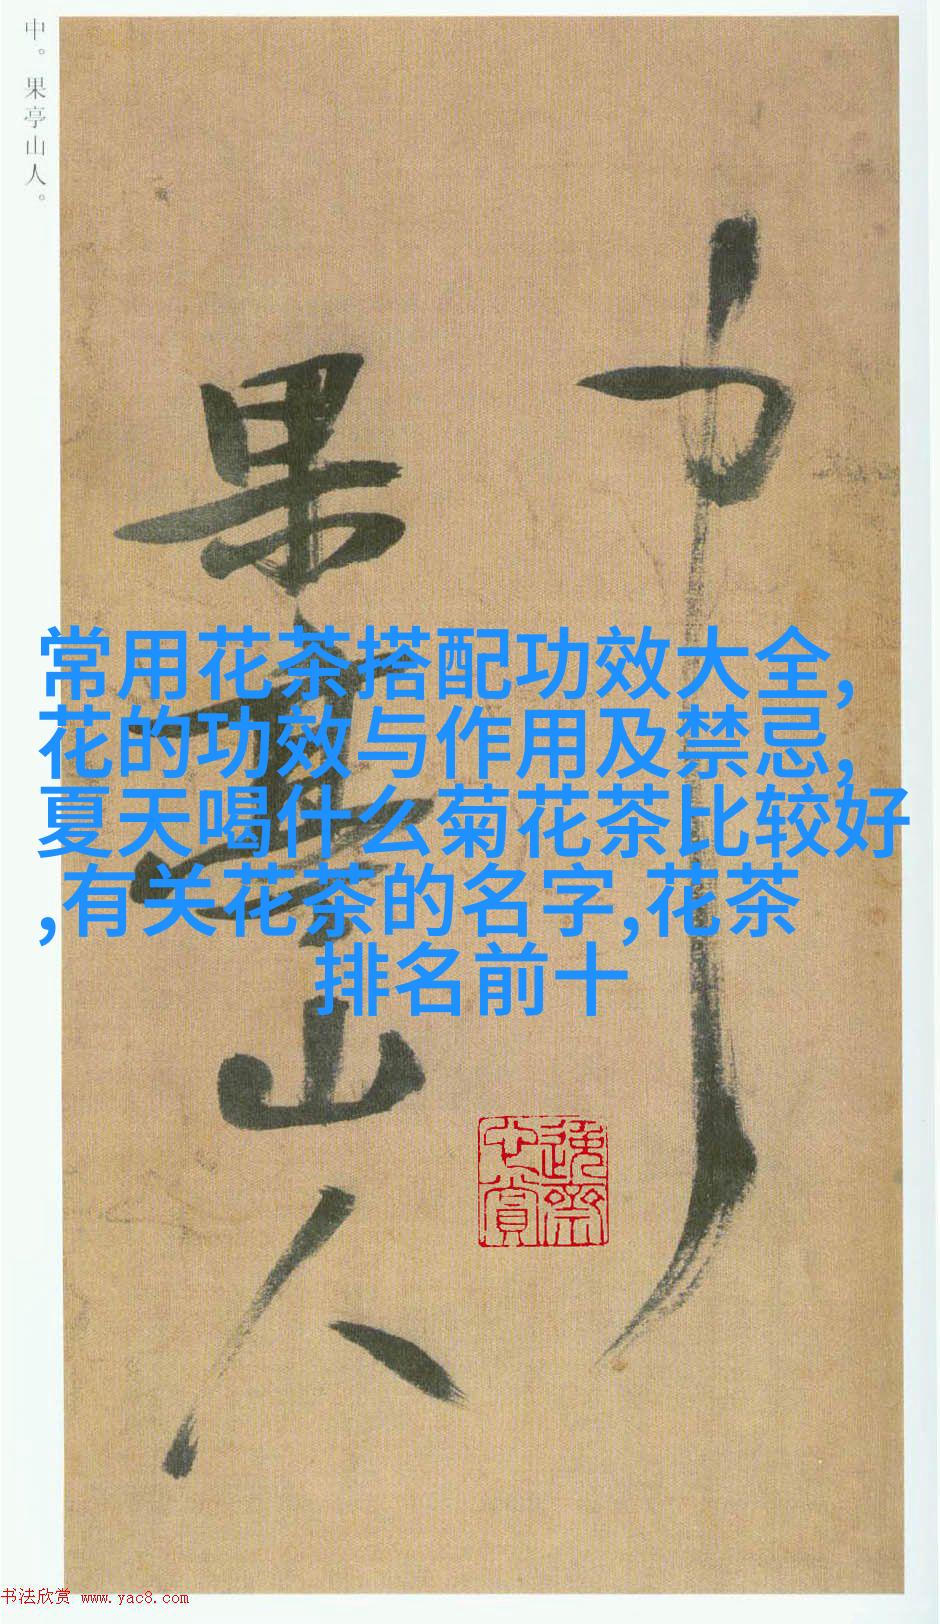 中。果亭山人。
中
果亭山人
常用花茶搭配功效大全,
花的功效与作用及禁忌,
夏天喝什么菊花茶比较好
,有关花茶的名字,花茶
排名前十
逸齋
心賞
书法欣赏 www.yac8.com